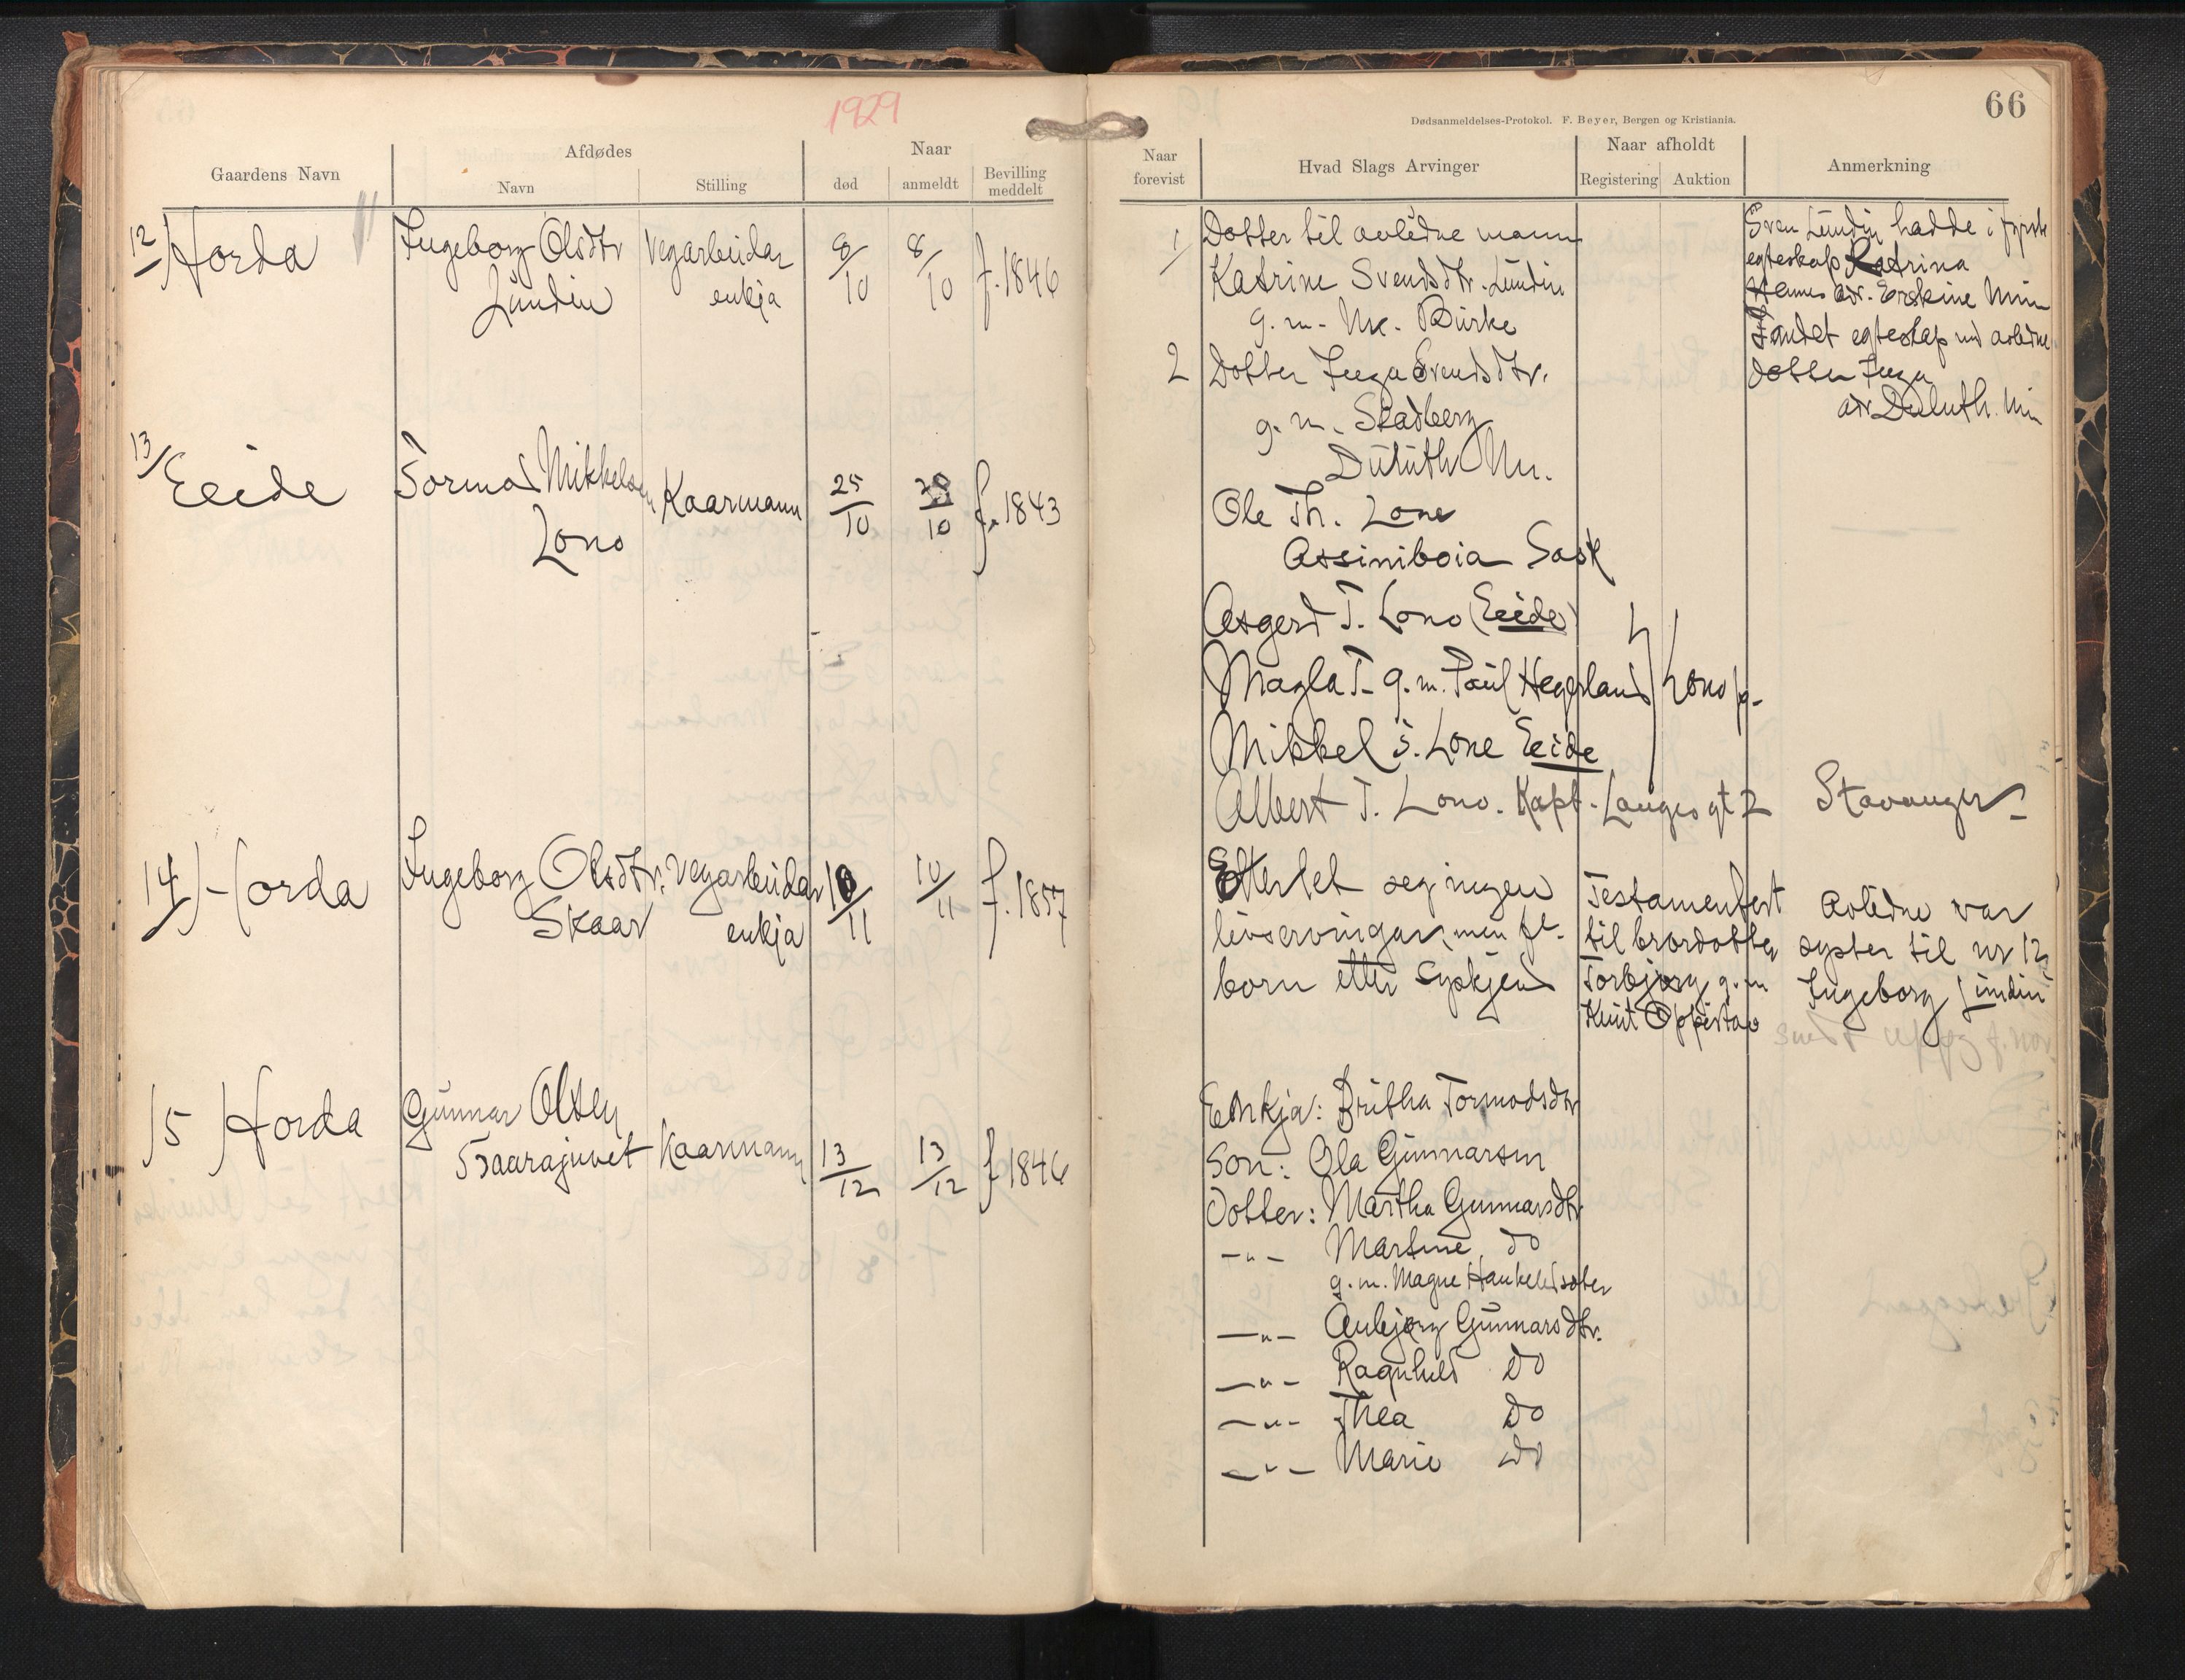 1929
66
Dødsanmeldelses-Protokol. F. Beyer, Bergen og Kristiania.
Gaardens Navn
Afdødes
Navn
Stilling
Naar
død
anmeldt
Bevilling meddelt
Naar forevist
Hvad Slags Arvinger
Naar afholdt
Registering
Auktion
Anmerkning
12) Horda
Ingeborg Olsdtr
Lundin
Vegarbeidar
enkja
8/10
8/10
f. 1846
1
Dotter til avlidne mann
Katrine Svendsdtr. Lundin
g. m. Burke
2 Dotter Inga Svendsdtr.
g. m. Skadberg
Duluth
Sven Lundin hadde i fyrste
egteskap Katrina
adr. Erskine Minn
I andet egteskap avlidne
dotter Inga
adr Duluth. Min
13/ Eeide
Tormod Mikkelsen
Lono
Kaarmann
25/10
10
f. 1843
Ole Th. Lone
Assiniboia Sask
Asgerd T. Lono (Eeide)
Magla T. g. m. Paul Hegerland Lono
Mikkel T. Lone Eeide
Albert T. Lono. Kapt. Langes gt 2 Stavanger
14) Horda
Ingeborg Olsdtr.
Skaar
Vegarbeidar
enkja
10/11
10/11
f. 1857
Etterlet seg ingen
livsarvingar, men fl.
born etter syskjend
Testamentert
til brordotter
Torbjørg g. m
Knut Oppistao
Avlidne var
syster til nr 12
Ingeborg Lundin
15) Horda
Gunnar Olsen
Taarajuvet
Kaarmann
13/12
13/12
f 1846
Enkja: Britha Tormodsdtr
Son: Ola Gunnarson
Dotter: Martha Gunnarsdtr
-"- Martine do
g. m. Magne
-"- Anbjørg Gunnarsdtr.
-"- Ragnhild do
-"- Thea do
-"- Marie do